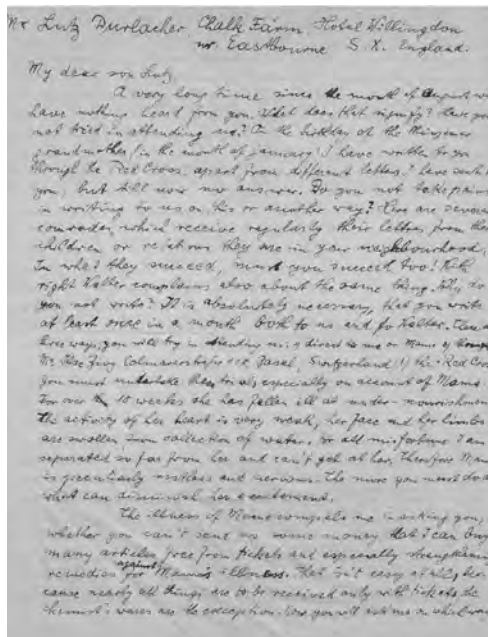 Mr Lutz Durlacher, Chalk Farm, Hotel Willingdon
nr. Eastbourne S.X. England.
My dear son Lutz,
A very long time since the month of August we
have nothing heard from you. What does that signify? Have you
not tried in attending me? On the birthday of the
grandmother (in the month of january) I have written to you
through the Red Cross, apart from different letters I have sent to
you, but till now no answer. Do you not take pains
in writing to us on this or another way? Here are several
comrades, which receive regularly their letters from their
children or relations they are in your neighbourhood.
In what they succeed, must you succeed too! With
right Walter complains also about the same thing. Why do
you not write? It is absolutely necessary, that you write
at least once in a month both to us and for Walter.
ways, you will try in attending us: direct to me or Mama
Basel, Switzerland the Red Cross
you must undertake trials, especially on account of Mama.
For over the 10 weeks she has fallen ill at under-nourishment
the activity of her heart is very weak, her face and her limbs
are swollen from collection of water. For all misfortune I am
separated so far from her and can't get at her. Therefore Mama
is peculiarly restless and nervous. The more you must do all
what can diminish her excitement.
The illness of Mama compels me in asking you,
whether you can't sent us some money that I can buy
many articles free from tickets and especially strengthening
remedies against Mama's illness. That isn't easy at all, be-
cause nearly all things are to be received only with tickets, the
chemist's wares are the exception. Now you will ask me on what way